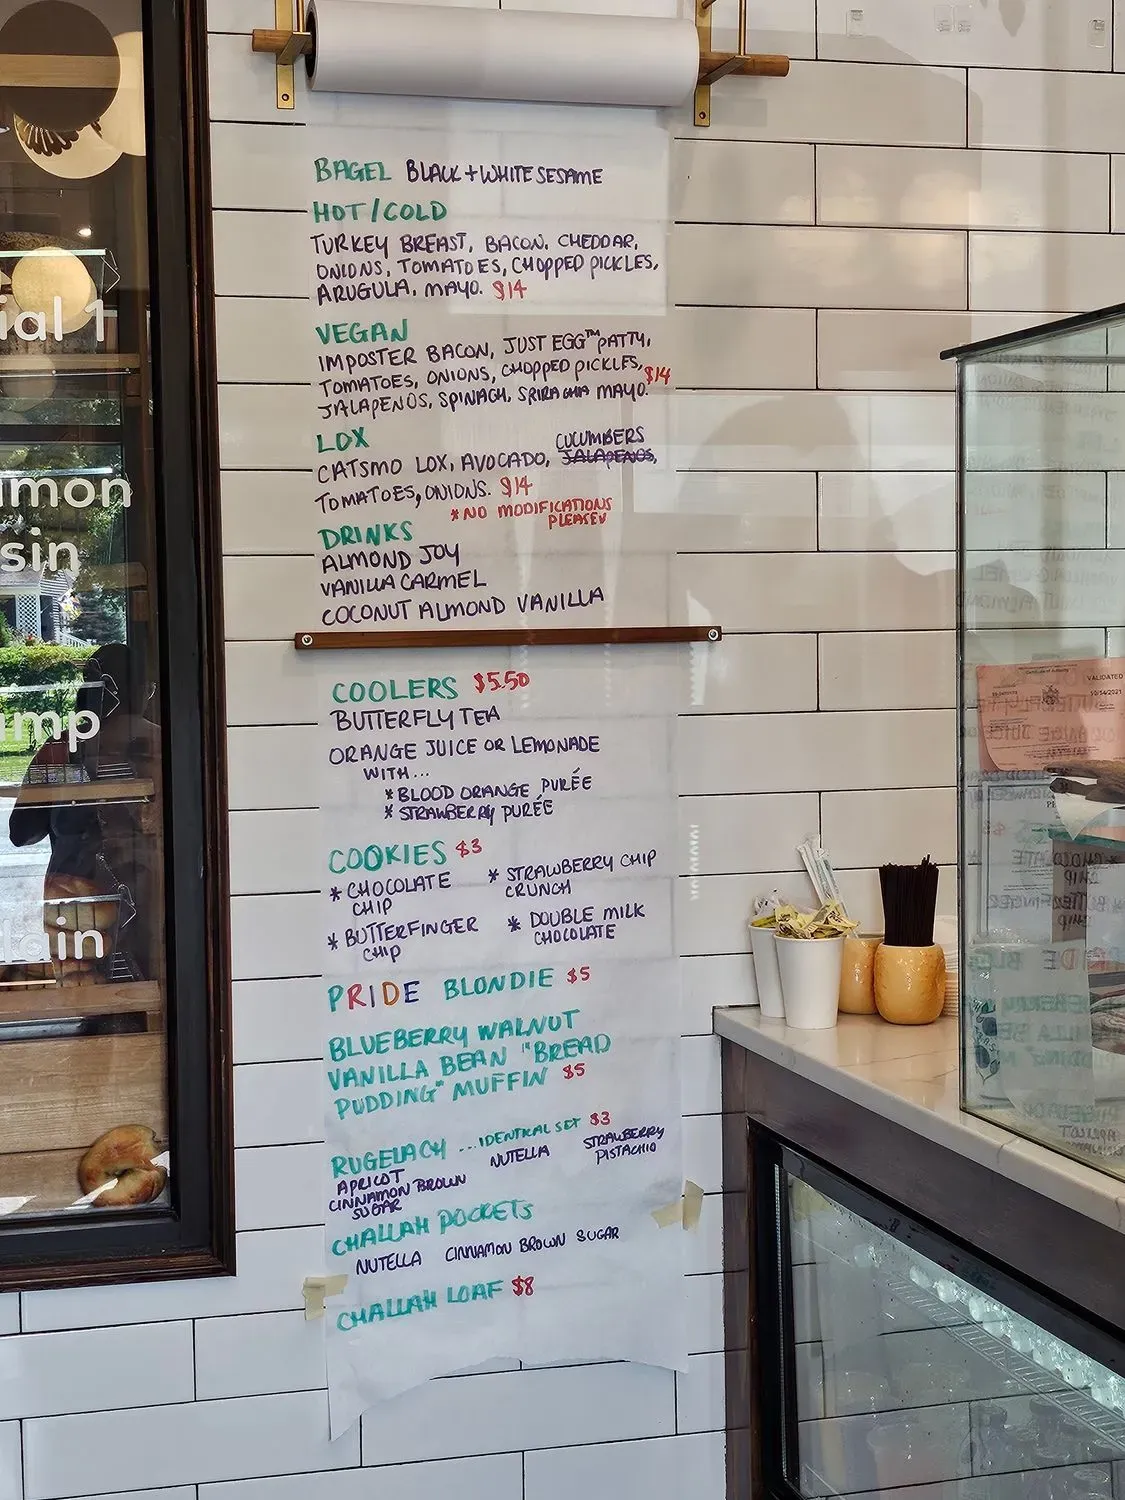 BAGEL BLACK + WHITE SESAME
HOT/COLD
TURKEY BREAST, BACON, CHEDDAR,
ONIONS, TOMATOES, CHOPPED PICKLES,
ARUGULA, MAYO. $14
VEGAN
IMPOSTER BACON, JUST EGG™ PATTY,
TOMATOES, ONIONS, CHOPPED PICKLES, $14
JALAPENOS, SPINACH, SRIRACHA MAYO.
LOX
CUCUMBERS
CATSMO LOX, AVOCADO, JALAPENOS,
TOMATOES, ONIONS. $14
*NO MODIFICATIONS
PLEASE
DRINKS
ALMOND JOY
VANILLA CARMEL
COCONUT ALMOND VANILLA
COOLERS $5.50
BUTTERFLY TEA
ORANGE JUICE OR LEMONADE
WITH...
* BLOOD ORANGE PURÉE
* STRAWBERRY PURÉE
COOKIES $3
* CHOCOLATE
CHIP
* STRAWBERRY CHIP
CRUNCH
* BUTTERFINGER
CHIP
* DOUBLE MILK
CHOCOLATE
PRIDE BLONDIE $5
BLUEBERRY WALNUT
VANILLA BEAN "BREAD
PUDDING" MUFFIN $5
RUGELACH ...IDENTICAL SET $3
APRICOT
CINNAMON BROWN
SUGAR
NUTELLA
STRAWBERRY
PISTACHIO
CHALLAH POCKETS
NUTELLA CINNAMON BROWN SUGAR
CHALLAH LOAF $8
ial 1
amon
sin
ump
lain
Certificate of Authority
VALIDATED
10/14/2021